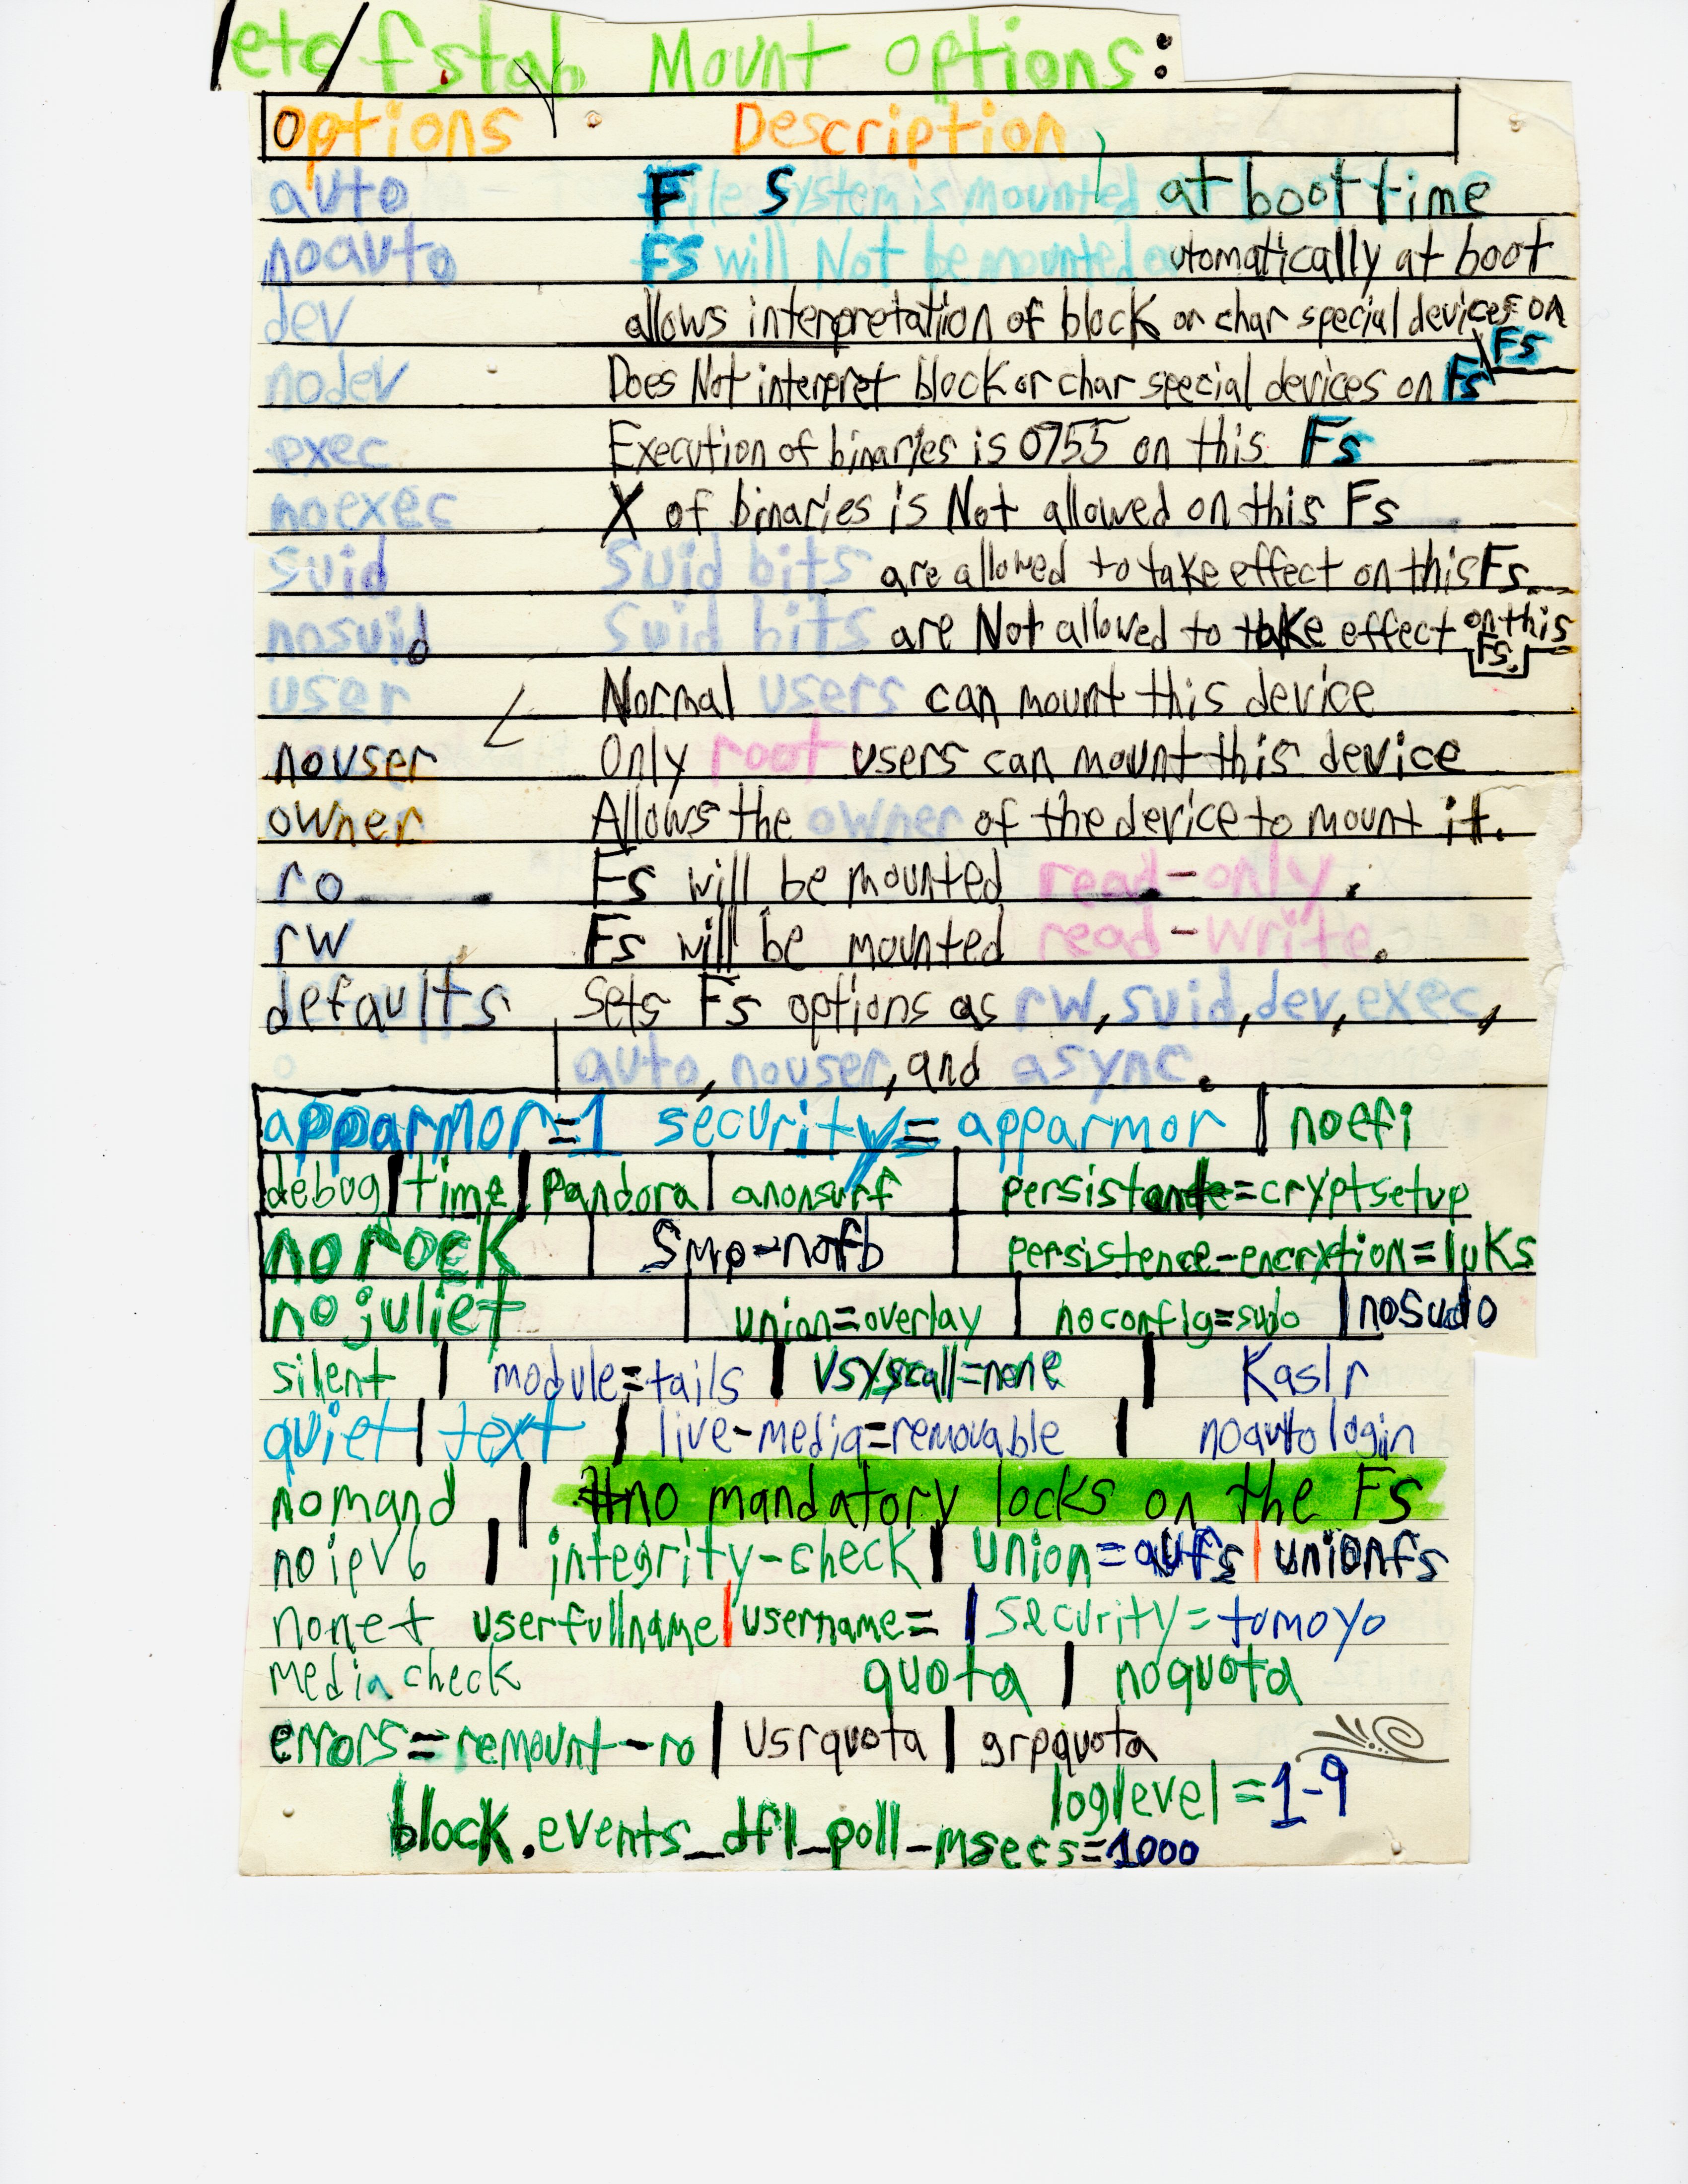 /etc/fstab Mount options:
options Description
auto File System is mounted at boot time
noauto FS will Not be mounted automatically at boot
dev allows interpretation of block or char special devices on Fs
nodev Does Not interpret block or char special devices on Fs
exec Execution of binaries is 0755 on this Fs
noexec X of binaries is Not allowed on this Fs
suid Suid bits are allowed to take effect on this Fs
nosuid Suid bits are Not allowed to take effect on this Fs.
user Normal users can mount this device
nouser Only root users can mount this device
owner Allows the owner of the device to mount it.
ro Fs will be mounted read-only.
rw Fs will be mounted read-write.
defaults Sets Fs options as rw, suid, dev, exec,
auto, nouser, and async.
apparmor=1 security=apparmor | noefi
debug | time | Pandora | anonsurf persistante=cryptsetup
norock | Smp=nofb persistence-encryption=luks
nojuliet | union=overlay | noconfig=sudo | nosudo
silent | module=tails | vsyscall=none | Kaslr
quiet | text | live-media=removable | noautologin
nomand | #no mandatory locks on the Fs
noipv6 | integrity-check | union=aufs | unionfs
nonet userfullname | username= | security=tomoyo
mediacheck quota | noquota
errors=remount-ro | usrquota | grpquota
loglevel=1-9
block.events_dfl_poll_msecs=1000